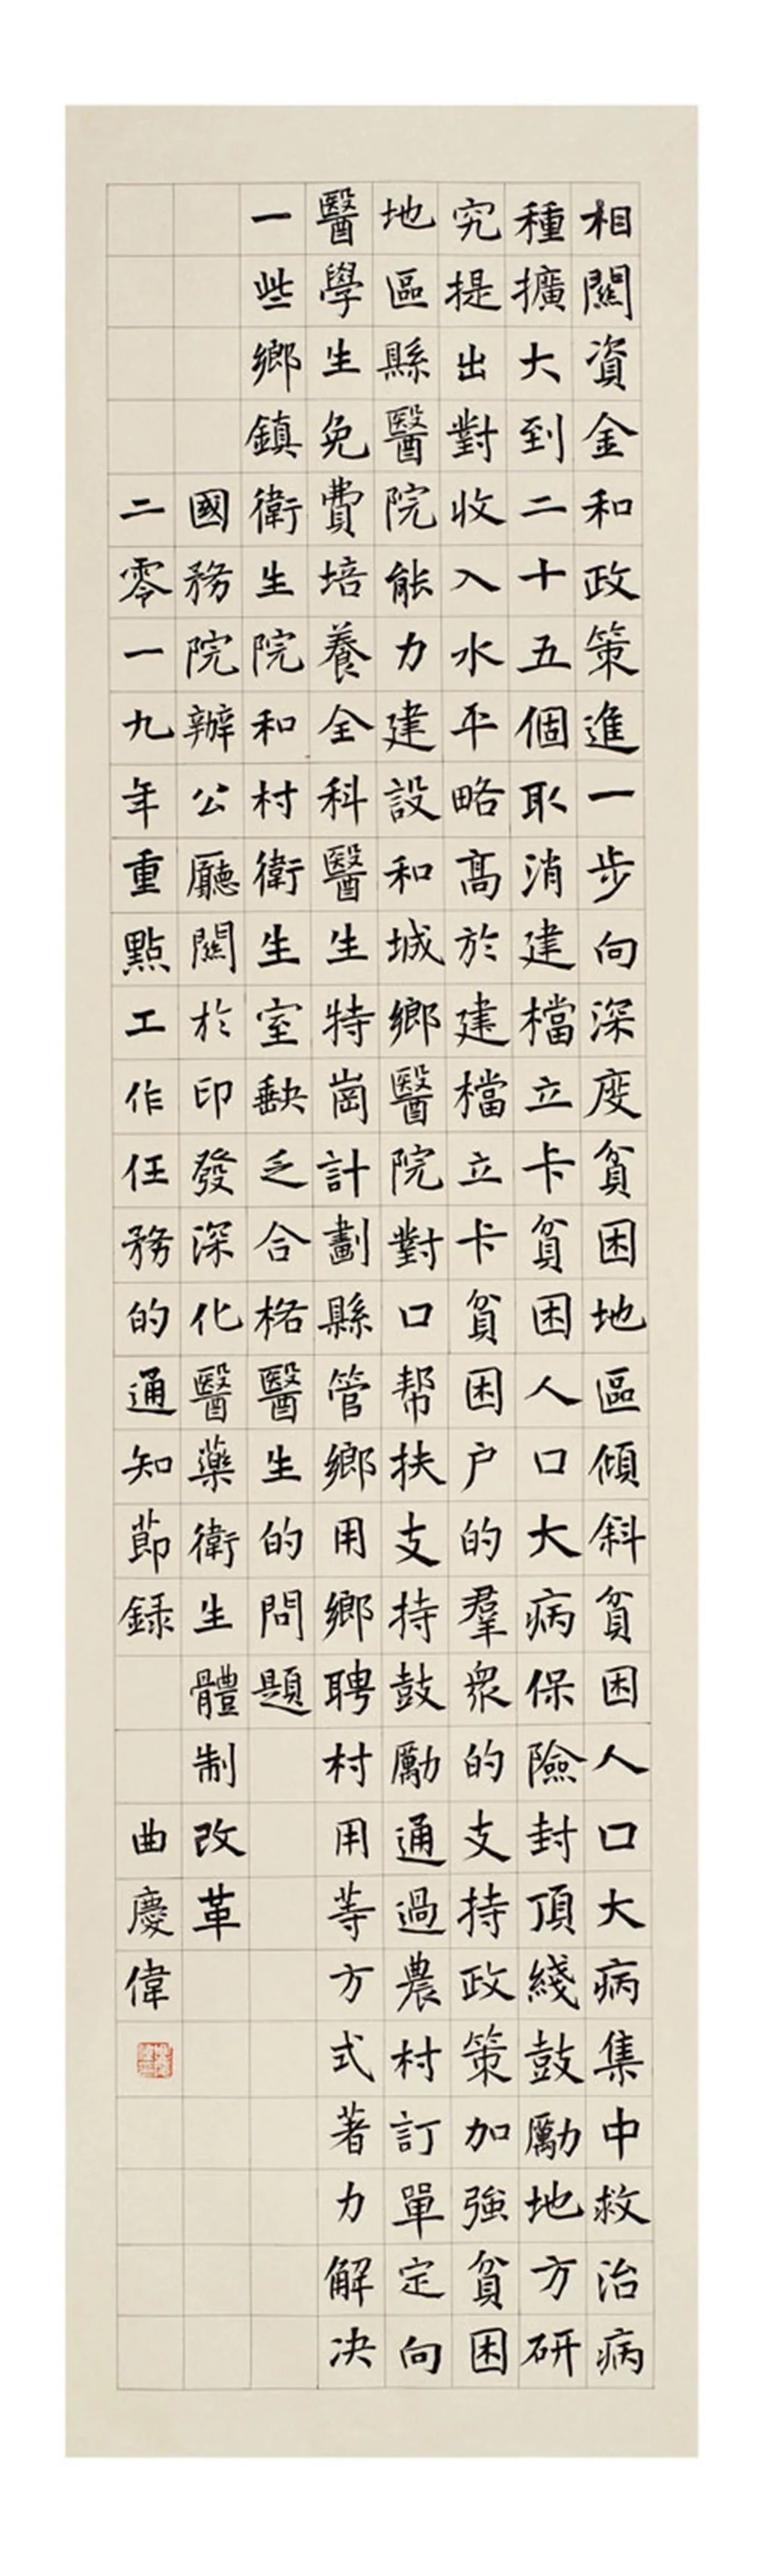 相關資金和政策進一步向深度貧困地區傾斜貧困人口大病集中救治病
種擴大到二十五個取消建檔立卡貧困人口大病保險封頂綫鼓勵地方研
究提出對收入水平略高於建檔立卡貧困户的羣衆的支持政策加強貧困
地區縣醫院能力建設和城鄉醫院對口帮扶支持鼓勵通過農村訂單定向
醫學生免費培養全科醫生特崗計劃縣管鄉用鄉聘村用等方式著力解决
一些鄉鎮衛生院和村衛生室缺乏合格醫生的問題
國務院辦公廳關於印發深化醫藥衛生體制改革
二零一九年重點工作任務的通知節録 曲慶偉